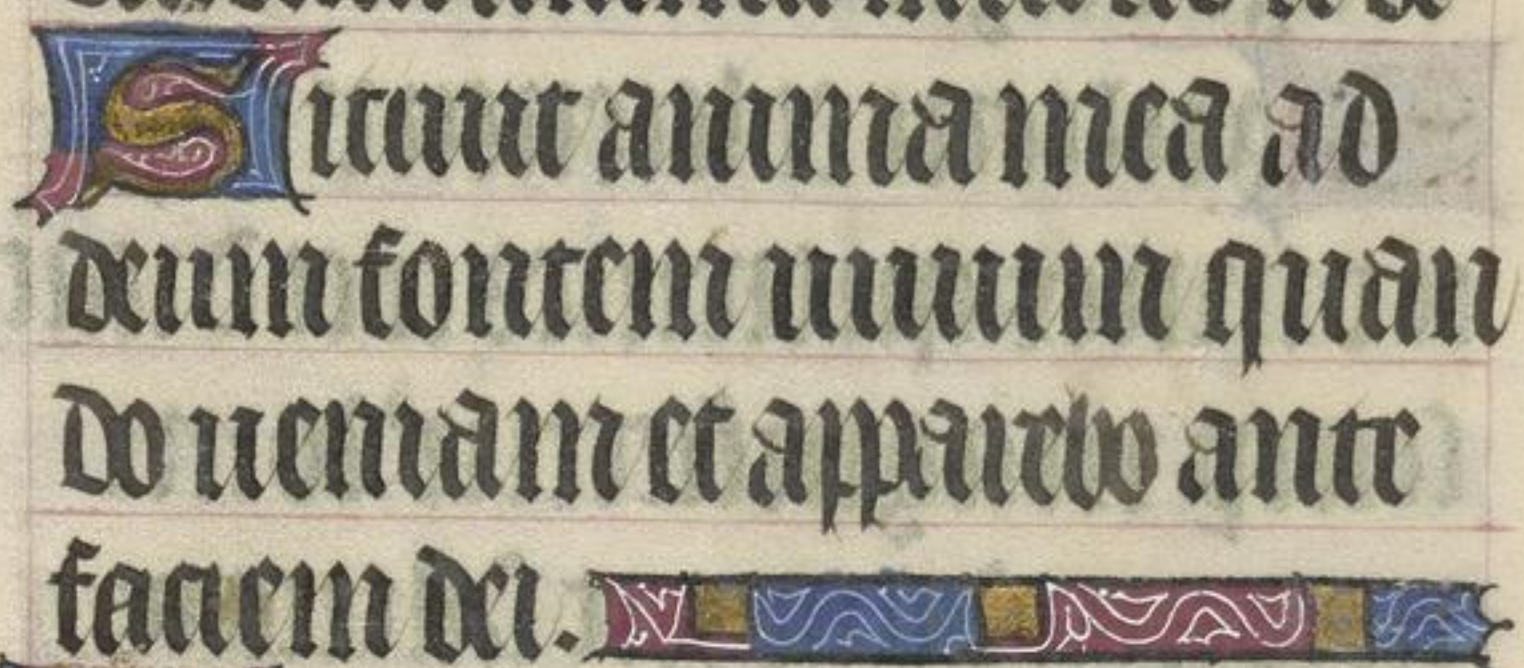 Sitiuit anima mea ad
deum fontem uiuum quan
do ueniam et apparebo ante
faciem dei.